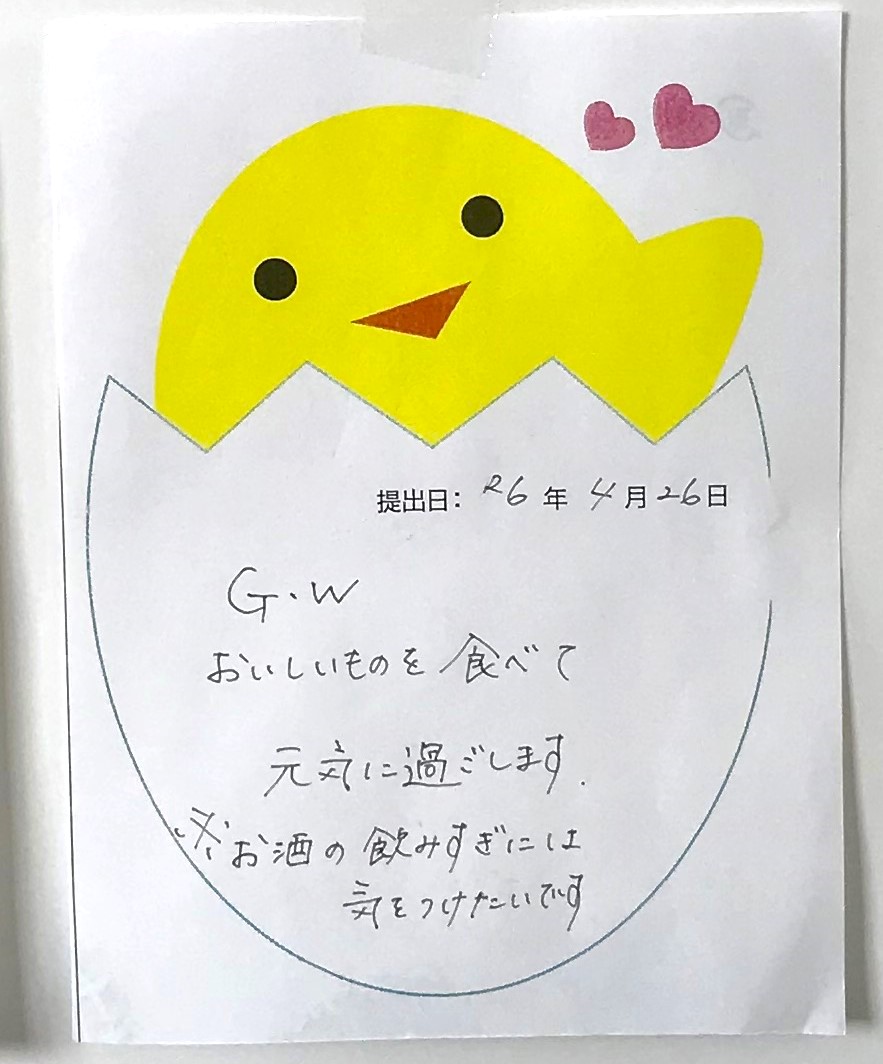 提出日： R6 年 4 月 26 日
G.W
おいしいものを食べて
元気に過ごします.
※お酒の飲みすぎには
気をつけたいです